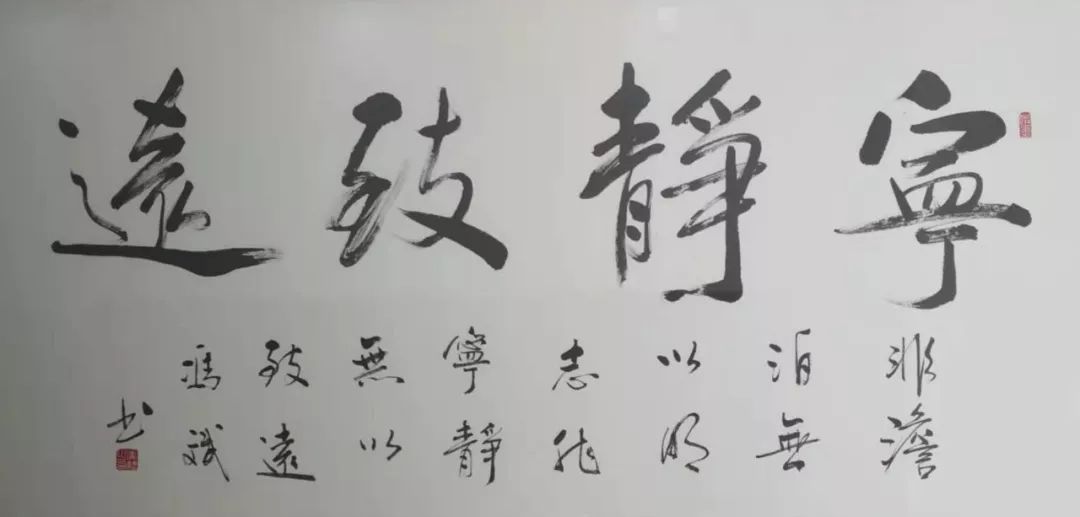 寧靜致遠
非澹
泊無
以明
志非
寧靜
無以
致遠
馮斌
书